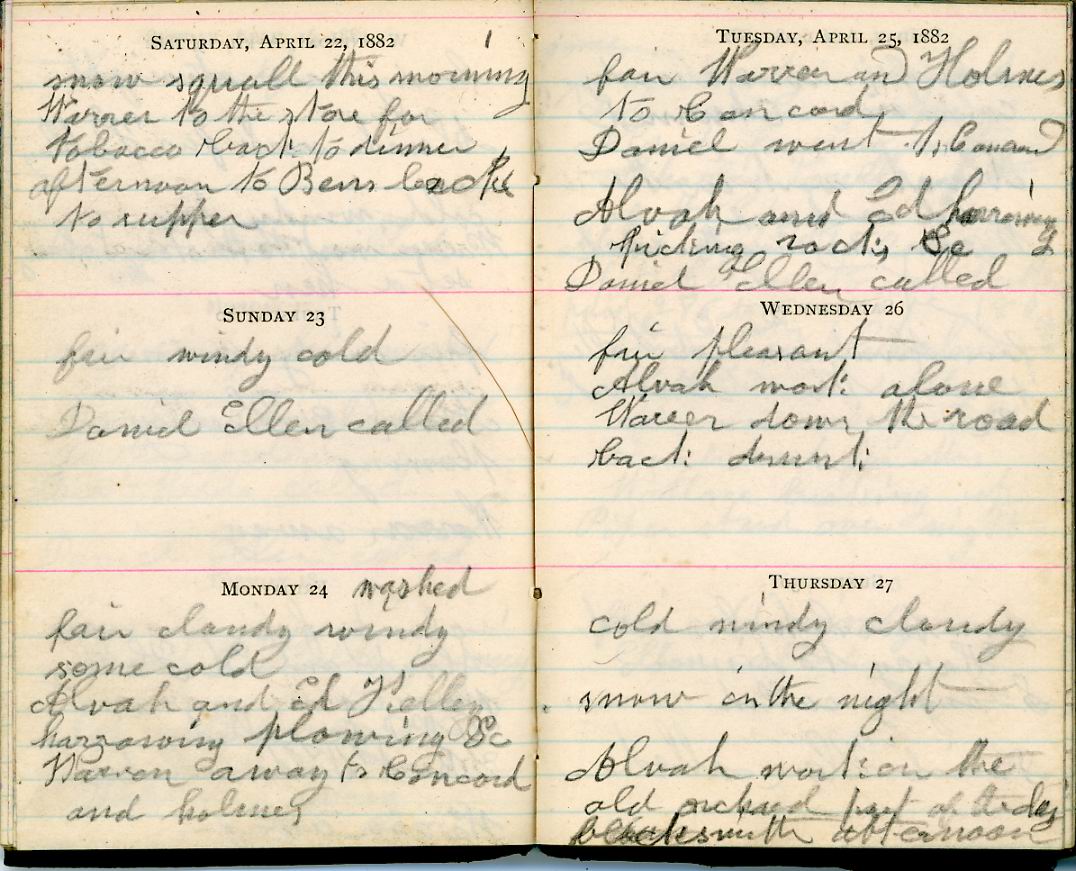 SATURDAY, APRIL 22, 1882
1
snow squall this morning
Warren to the store for
tobacco back to dinner
afternoon to Bens back
to supper
SUNDAY 23
fair windy cold
Daniel Ellen called
MONDAY 24 washed
fair cloudy windy
some cold
Alvah and Ed Kelley
harrowing plowing &c
Warren away to Concord
and holmes
TUESDAY, APRIL 25, 1882
fair Warren and Holmes
to Concord
Daniel went to Concord
Alvah and Ed harrowing
picking rocks &c
Daniel Ellen called
WEDNESDAY 26
fair pleasant
Alvah work alone
Warren down the road
back drunk
THURSDAY 27
cold windy cloudy
snow in the night
Alvah work on the
old orchard part of the day
blacksmith afternoon